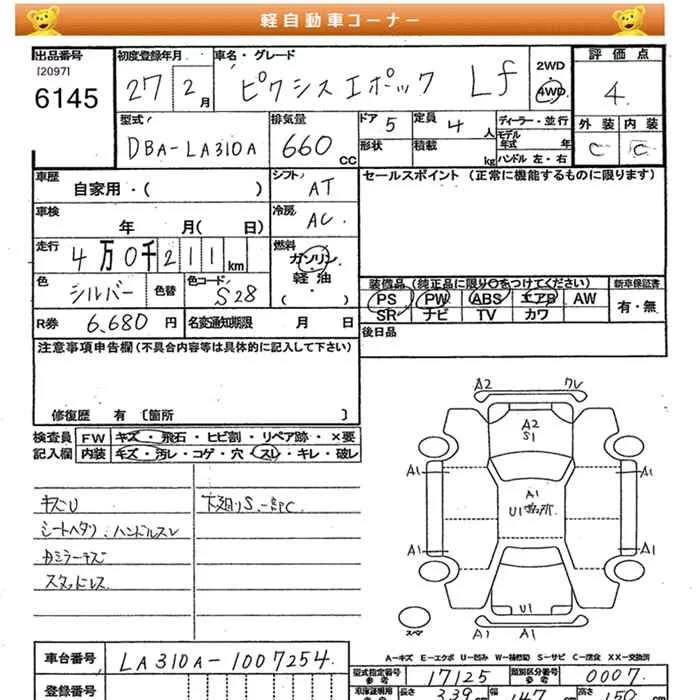 軽自動車コーナー
出品番号 初度登録年月 車名・グレード 2WD・4WD 評価点
[2097]
6145 27 2月 ピクシスエポック Lf 4
型式 排気量 ドア 定員 ディーラー・並行 外装 内装
DBA-LA310A 660CC 5 4人 モデル年式 年 C C
形状 積載 kg ハンドル 左・右
車歴 自家用・( ) シフト AT セールスポイント (正常に機能するものに限ります)
車検 年 月( 日) 冷房 AC
走行 4万0千211km 燃料 ガソリン・軽油・( )
色 シルバー 色替 色コード S28 装備品 (純正品に限り○をつけてください) 新車保証書
PS PW ABS エアB AW 有・無
SR ナビ TV カワ
R券 6,680円 名変通知期限 月 日 後日品
注意事項申告欄(不具合内容等は具体的に記入して下さい)
修復歴 有〔箇所 〕
検査員記入欄 FW キズ・飛石・ヒビ割・リペア跡・×要
内装 キズ・汚レ・コゲ・穴・スレ・キレ・破レ
キズU 下廻りS
シートヘタリ ハンドルスレ
カミラーキズ
スタッドレス
A2
A2
S1
A1
A1
A1
U1
A1
A1
U1
A1
A1
スペア
A-キズ E-エクボ U-凹み W-補修跡 S-サビ C-腐食 XX-交換済
車台番号 LA310A-1007254
型式指定番号 参考 17125 類別区分番号 参考 0007
登録番号
車庫証明用 長さ 339cm 幅 147cm 高さ 150cm